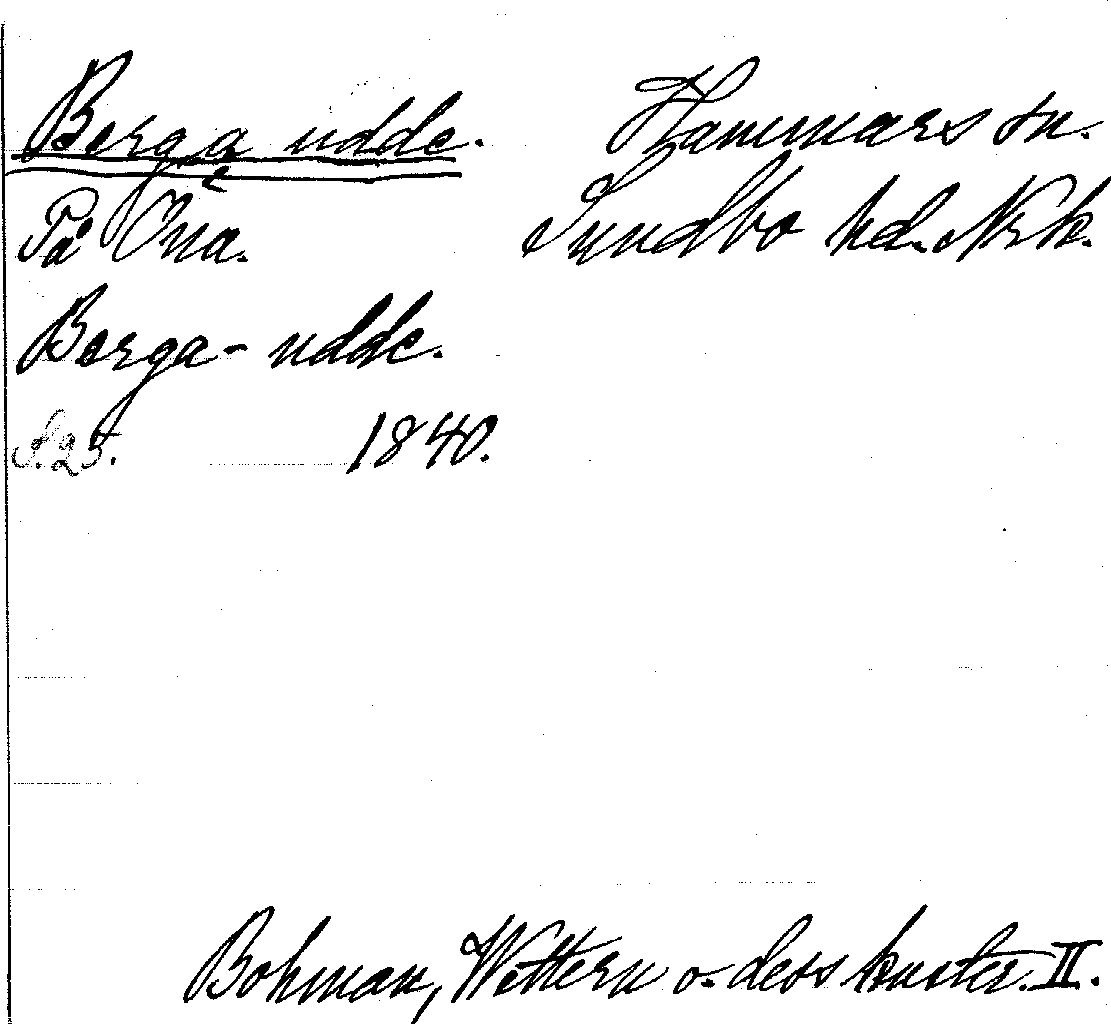 Berga udde. Hammars sn.
På Öna. Sundbo hd. Nrk.
Berga-udde.
S. 25. 1840.
Bohman, Wettern o. dess kuster. II.